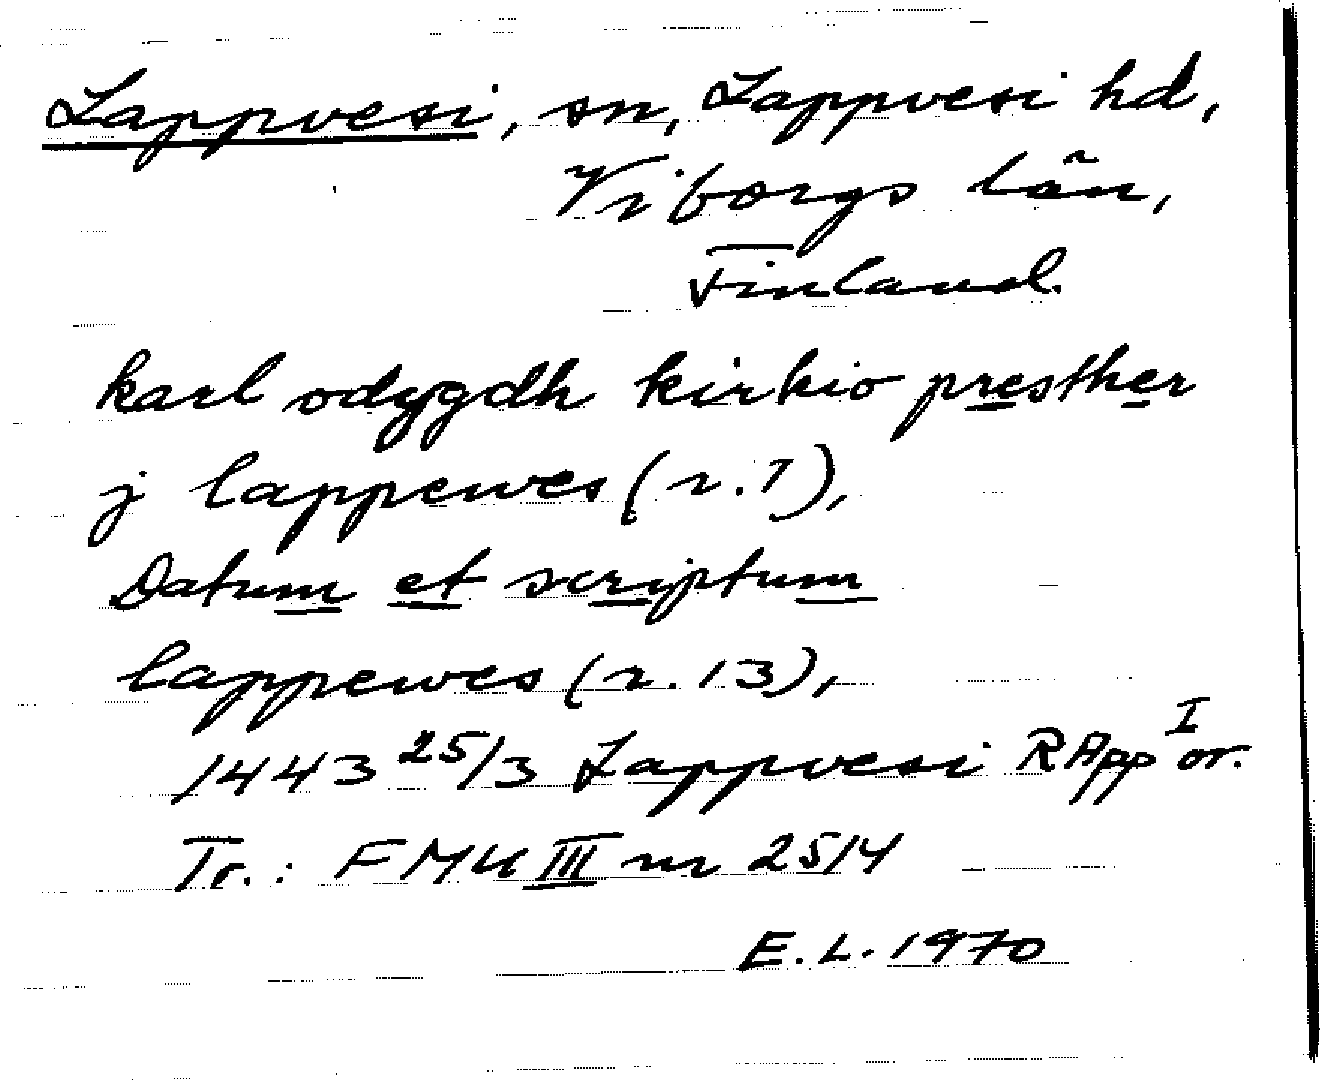 Lappvesi, sn, Lappvesi hd,
Viborgs län,
Finland.
karl odygdh kirkio presther
j lappewes (r. 1),
Datum et scriptum
lappewes (r. 13),
1443 25/3 Lappvesi RApp I or.
Tr.: FMU III nr 2514
E.L. 1970